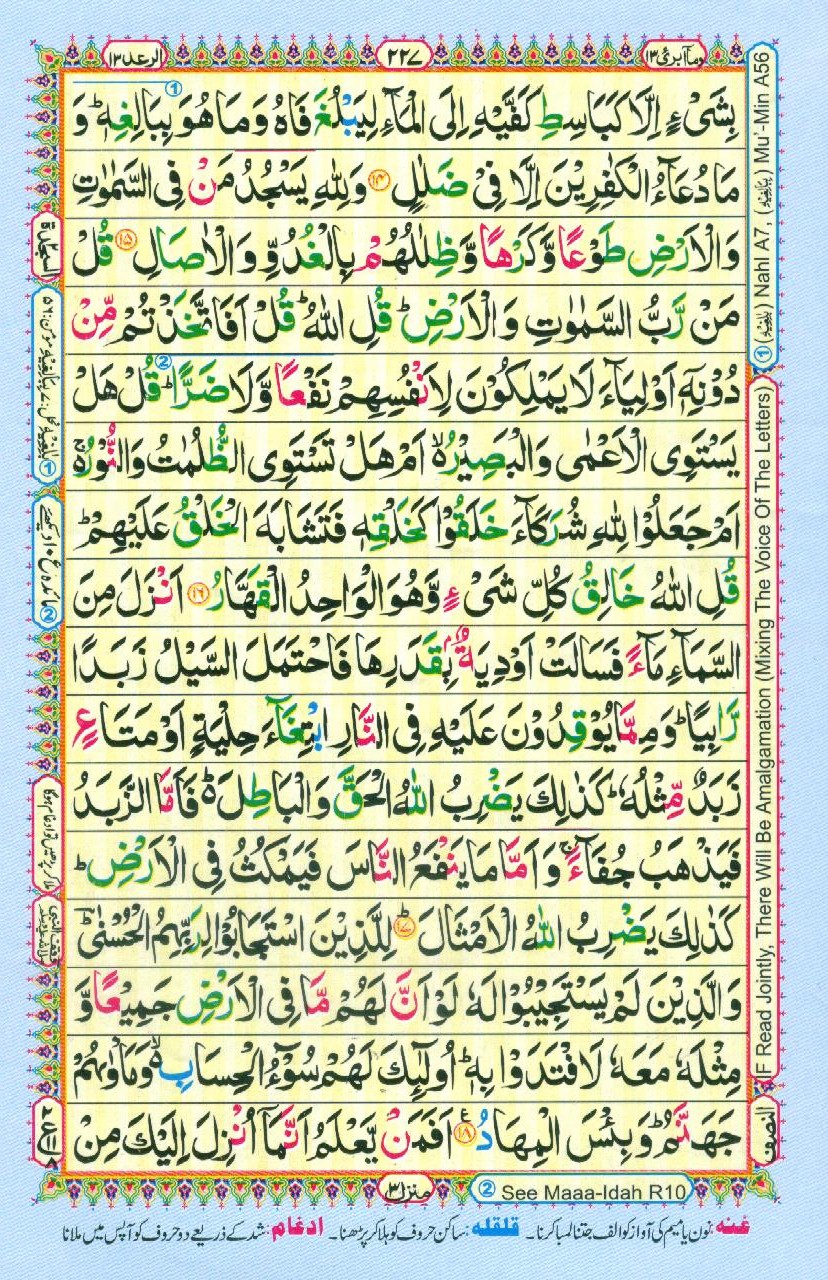 وماابرئ ١٣
٢٢٧
الرعد ١٣
بِشَیْءٍ اِلَّا كَبَاسِطِ كَفَّیْهِ اِلَی الْمَآءِ لِیَبْلُغَ فَاهُ وَمَا هُوَ بِبَالِغِهٖ ؕ وَ
مَا دُعَآءُ الْكٰفِرِیْنَ اِلَّا فِیْ ضَلٰلٍ ۝۱۴ وَلِلّٰهِ یَسْجُدُ مَنْ فِی السَّمٰوٰتِ
وَالْاَرْضِ طَوْعًا وَّكَرْهًا وَّظِلٰلُهُمْ بِالْغُدُوِّ وَالْاٰصَالِ ۝۱۵ قُلْ
مَنْ رَّبُّ السَّمٰوٰتِ وَالْاَرْضِ ؕ قُلِ اللّٰهُ ؕ قُلْ اَفَاتَّخَذْتُمْ مِّنْ
دُوْنِهٖۤ اَوْلِیَآءَ لَا یَمْلِكُوْنَ لِاَنْفُسِهِمْ نَفْعًا وَّلَا ضَرًّا ؕ قُلْ هَلْ
یَسْتَوِی الْاَعْمٰی وَالْبَصِیْرُ ۙ۬ اَمْ هَلْ تَسْتَوِی الظُّلُمٰتُ وَالنُّوْرُ ۚ۬
اَمْ جَعَلُوْا لِلّٰهِ شُرَكَآءَ خَلَقُوْا كَخَلْقِهٖ فَتَشَابَهَ الْخَلْقُ عَلَیْهِمْ ؕ
قُلِ اللّٰهُ خَالِقُ كُلِّ شَیْءٍ وَّهُوَ الْوَاحِدُ الْقَهَّارُ ۝۱۶ اَنْزَلَ مِنَ
السَّمَآءِ مَآءً فَسَالَتْ اَوْدِیَةٌۢ بِقَدَرِهَا فَاحْتَمَلَ السَّیْلُ زَبَدًا
رَّابِیًا ؕ وَمِمَّا یُوْقِدُوْنَ عَلَیْهِ فِی النَّارِ ابْتِغَآءَ حِلْیَةٍ اَوْ مَتَاعٍ
زَبَدٌ مِّثْلُهٗ ؕ كَذٰلِكَ یَضْرِبُ اللّٰهُ الْحَقَّ وَالْبَاطِلَ ؕ۬ فَاَمَّا الزَّبَدُ
فَیَذْهَبُ جُفَآءً ۚ وَاَمَّا مَا یَنْفَعُ النَّاسَ فَیَمْكُثُ فِی الْاَرْضِ ؕ
كَذٰلِكَ یَضْرِبُ اللّٰهُ الْاَمْثَالَ ۝۱۷ؕ لِلَّذِیْنَ اسْتَجَابُوْا لِرَبِّهِمُ الْحُسْنٰی ؕؔ
وَالَّذِیْنَ لَمْ یَسْتَجِیْبُوْا لَهٗ لَوْ اَنَّ لَهُمْ مَّا فِی الْاَرْضِ جَمِیْعًا وَّ
مِثْلَهٗ مَعَهٗ لَافْتَدَوْا بِهٖ ؕ اُولٰٓىِٕكَ لَهُمْ سُوْٓءُ الْحِسَابِ ۙ۬ وَمَاْوٰىهُمْ
جَهَنَّمُ ؕ وَبِئْسَ الْمِهَادُ ۝۱۸ؑ اَفَمَنْ یَّعْلَمُ اَنَّمَاۤ اُنْزِلَ اِلَیْكَ مِنْ
① (بٰلِغِیْهِ) Nahl A7, (بِبَالِغِیْهِ) Mu'-Min A56
IF Read Jointly, There Will Be Amalgamation (Mixing The Voice Of The Letters)
النصف
السجدة
① بٰلِغِیْهِ نحل: ۷، بِبَالِغِیْهِ مومن: ۵۶
ملا کر پڑھیں تو ادغام ہوگا
منزل ٣
② See Maaa-Idah R10
غنہ: نون یا میم کی آواز کو الف جتنا لمبا کرنا۔ قلقلہ: ساکن حروف کو ہلا کر پڑھنا۔ ادغام: شد کے ذریعے دو حروف کو آپس میں ملانا